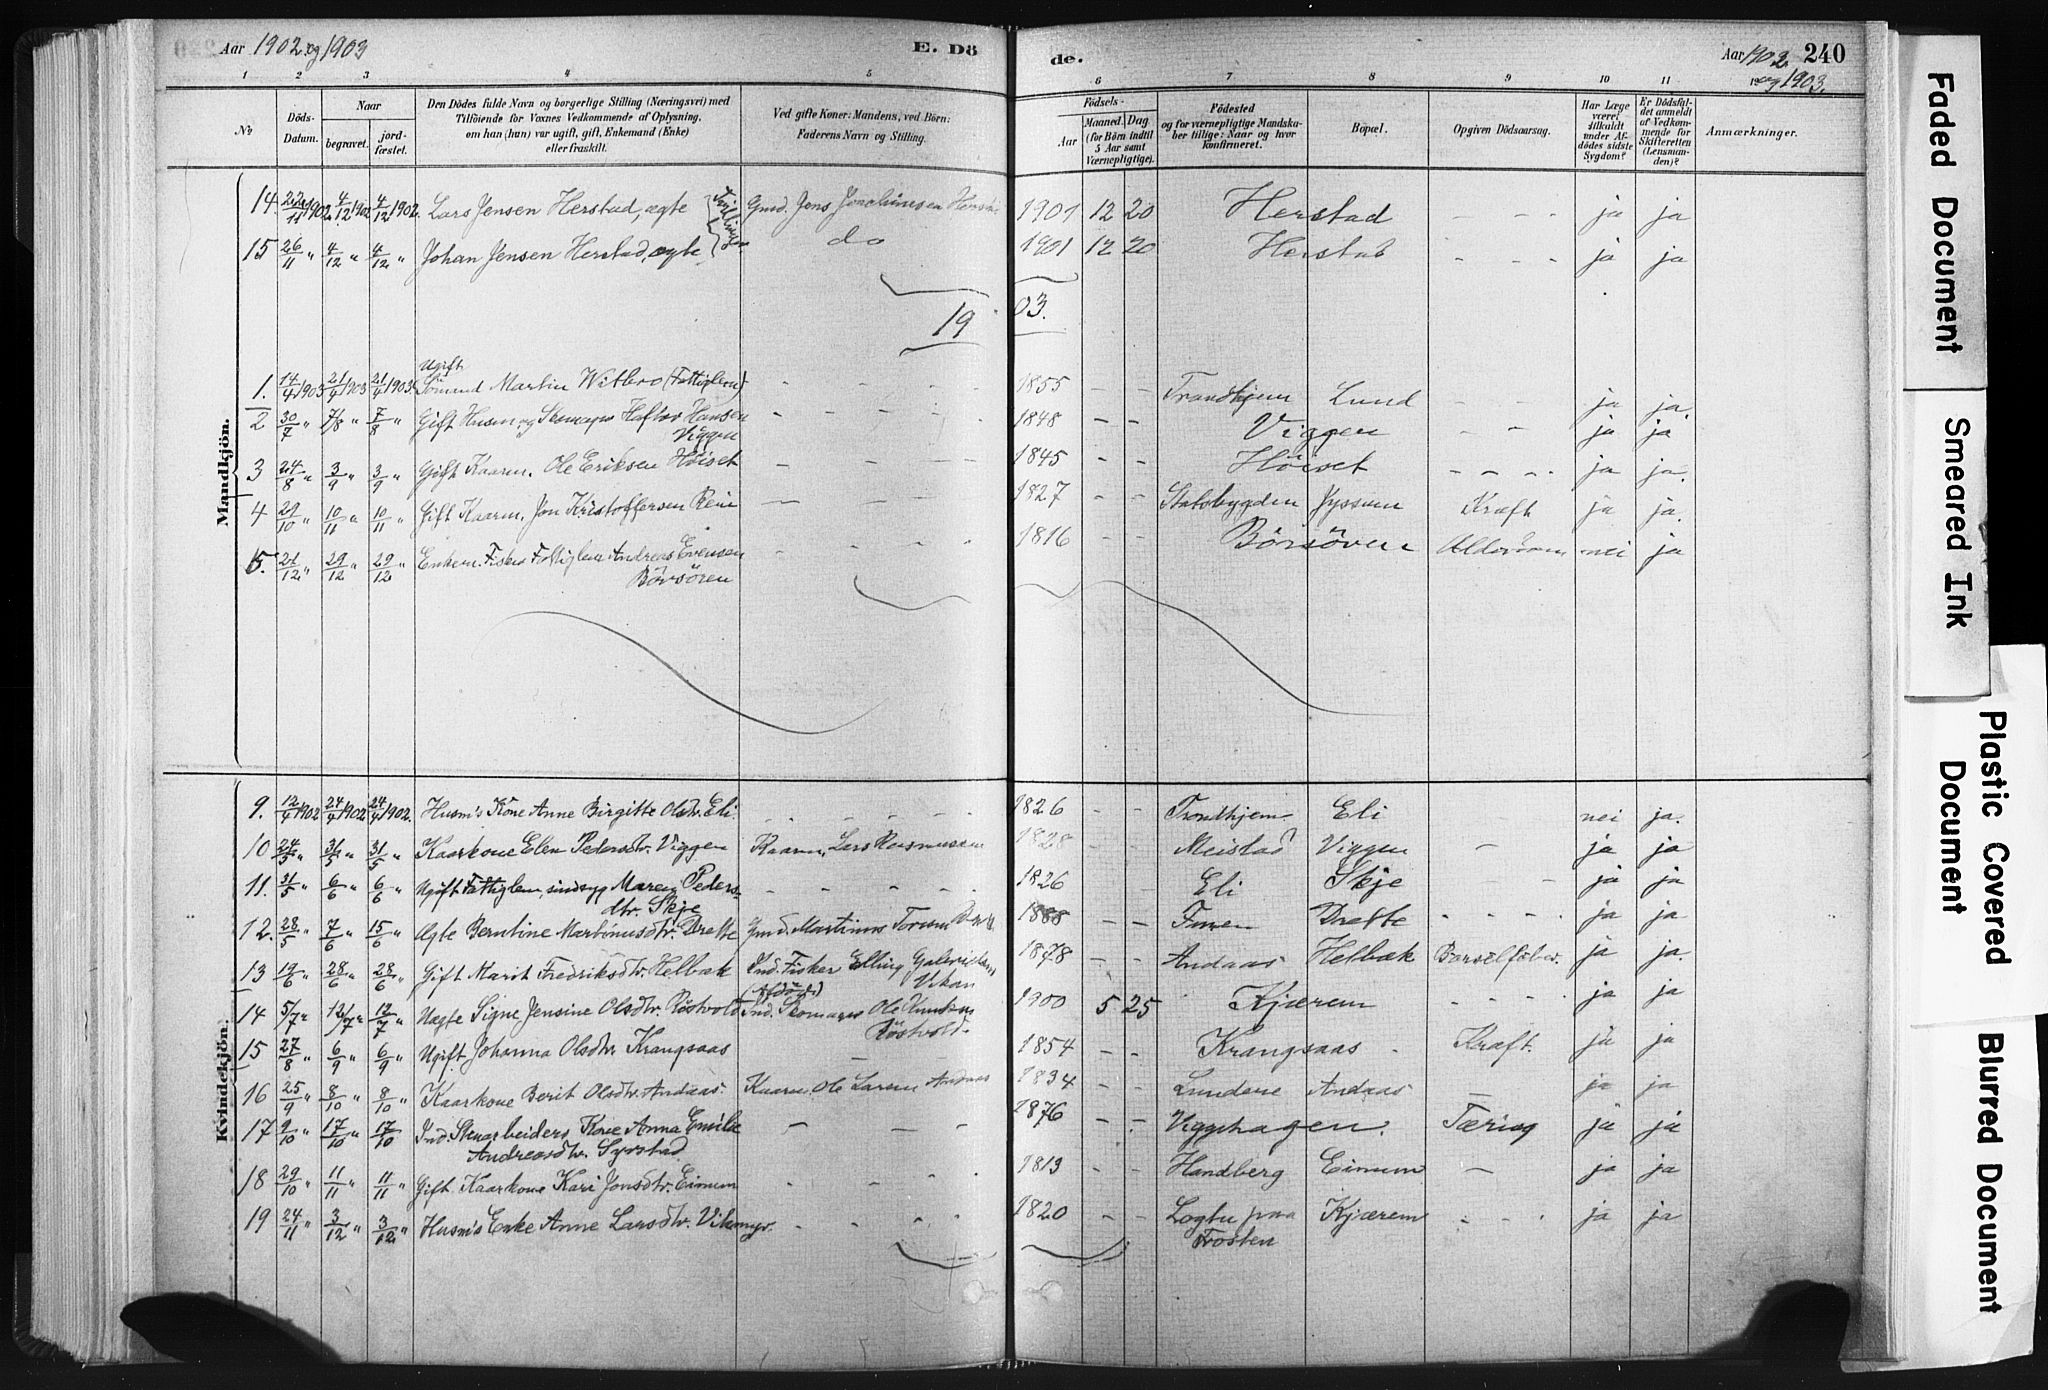 Aar 1902 og 1903
E. Dö
de.
Aar 1902 240
og 1903.
1 2 3 4 5 6 7 8 9 10 11
No Döds-Datum. Naar begravet. jordfæstet. Den Dödes fulde Navn og borgerlige Stilling (Næringsvei) med Tilföiende for Voxnes Vedkommende af Oplysning, om han (hun) var ugift, gift, Enkemand (Enke) eller fraskilt. Ved gifte Koner: Mandens, ved Börn: Faderens Navn og Stilling. Födsels- Aar Maaned. Dag (for Börn indtil 5 Aar samt Værnepligtige). Födested og for værnepligtige Mandskaber tillige: Naar og hvor konfirmeret. Bopæl. Opgiven Dödsaarsag. Har Læge været tilkaldt under Afdödes sidste Sygdom? Er Dödsfaldet anmeldt af Vedkommende for Skifteretten (Lensmanden)? Anmærkninger.
Mandkjön.
14. 22/11 1902. 4/12 1902 4/12 1902. Lars Jensen Herstad, ægte Tvillinger Gmd. Jens Jonchimsen 1901 12 20 Herstad - - - ja ja
15 26/11 " 4/12 " 4/12 " Johan Jensen Herstad, ægte do 1901 12 20 Herstad - - - ja ja
1903.
Ugift
1. 14/4 1903 21/4 1903 21/4 1903. Martin Witbro (Fattiglem) - - - 1855 - - Trondhjem Lund - - ja ja.
2 30/7 " 7/8 " 7/8 " Gift Husm. og Skomager Hansen - - - 1848 - - Viggen - - ja ja
Viggen
3 24/8 " 3/9 " 3/9 " Gift Kaarm. Ole Eriksen Höiset - - - 1845 - - Höiset - - - ja ja.
4 29/10 " 10/11 " 10/11 " Gift Kaarm. Jon Kristoffersen Rein - - - 1827 - - Stadsbygden Gyssum Kræft ja ja.
5. 21/12 " 29/12 " 29/12 " Enkem. Fisker Fattiglem Andreas Evensen - - - 1816 Börsören Alderdom nei ja
Börsören
Kvindekjön.
9. 12/4 1902 24/4 1902 24/4 1902. Husm's Kone Anne Birgitte Olsdtr. Eli - - - 1826 - - Trondhjem Eli nei ja.
10 24/5 " 31/5 " 31/5 " Kaarkone Elen Pedersdtr. Viggen Kaarm. Lars Rasmussen 1828 - - Meistad Viggen - ja ja
11. 31/5 " 6/6 " 6/6 " Ugift Fattiglem, sindsyg Maren Peders- - - - 1826 Eli Skje - - ja ja
dtr. Skje
12. 28/5 " 7/6 " 15/6 " Ægte Berntine Martinusdtr. Drette Gmd. Martinus 1888 - - Drette - - - ja ja
13 19/6 " 28/6 " 28/6 " Gift Marit Fredriksdtr. Helbæk Ind. Fisker Elling 1878 - - Andaas Helbæk Barselfeber. ja ja.
Vikan
14 5/7 " 12/7 " 12/7 " Uægte Signe Jensine Olsdtr. Röstvold (Afdöde) Ind. Skomager Ole Knudsen 1900 5 25 Kjærem - - - ja ja
Röstvold.
15 27/8 " 6/9 " 6/9 " Ugift Johanna Olsdtr. Krangsaas - - 1854 - - Krangsaas - Kræft. ja ja
16 25/9 " 8/10 " 8/10 " Kaarkone Berit Olsdtr. Andaas. Kaarm. Ole Larsen Andaas 1834 - - Lundene Andaas - ja ja
17 9/10 " 17/10 " 17/10 Ind. Stenarbeiders Kone Anna Emilie - - - 1876 - - Viggahagen. Tæring ja ja
Andreasdtr. Syrstad
18 29/10 " 11/11 " 11/11 " Gift Kaarkone Kari Jonsdtr. Eimum - - - 1813 - - Handberg Eimum - ja ja
19 24/11 " 3/12 " 3/12 " Husm's Enke Anne Larsdtr. Vikmyr. - - - 1820 - - Logtu paa Kjærem - - - ja ja
Frosten
Faded Document
Smeared Ink
Plastic Covered
Document
Blurred Document